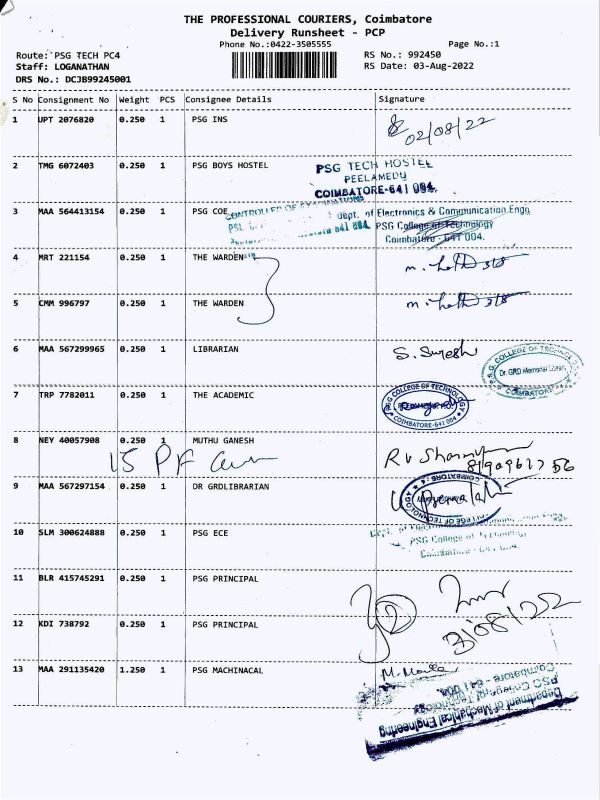 THE PROFESSIONAL COURIERS, Coimbatore
Delivery Runsheet - PCP
Phone No.:0422-3505555
Page No.:1
Route: PSG TECH PC4
RS No.: 992450
Staff: LOGANATHAN
RS Date: 03-Aug-2022
DRS No.: DCJB99245001
S No Consignment No Weight PCS Consignee Details Signature
1 UPT 2076820 0.250 1 PSG INS
02/08/22
2 TMG 6072403 0.250 1 PSG BOYS HOSTEL
PSG TECH HOSTEL
PEELAMEDU
COIMBATORE-641 004.
3 MAA 564413154 0.250 1 PSG COE
CONTROLLER OF EXAMINATIONS
Dept. of Electronics & Communication Engg
PSG College of Technology
Coimbatore - 641 004.
4 MRT 221154 0.250 1 THE WARDEN
5 CMM 996797 0.250 1 THE WARDEN
6 MAA 567299965 0.250 1 LIBRARIAN
S. Suresh
P.S.G. COLLEGE OF TECHNOLOGY
Dr. GRD Memorial Library
COIMBATORE
7 TRP 7782011 0.250 1 THE ACADEMIC
PSG COLLEGE OF TECHNOLOGY
COIMBATORE-641 004
8 NEY 40057908 0.250 1 MUTHU GANESH
15 PF
9 MAA 567297154 0.250 1 DR GRDLIBRARIAN
10 SLM 300624888 0.250 1 PSG ECE
PSG College of Technology
Coimbatore - 641 004.
11 BLR 415745291 0.250 1 PSG PRINCIPAL
12 KDI 738792 0.250 1 PSG PRINCIPAL
13 MAA 291135420 1.250 1 PSG MACHINACAL
Department of Mechanical Engineering
PSG College of Technology
Coimbatore - 641 004.